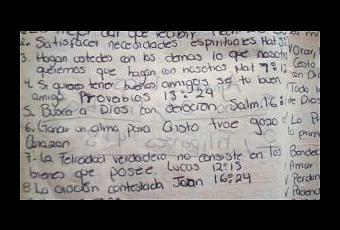 mejor dar que recibir
2. Satisfacer necesidades espirituales Mat 5:
3. Hagan ustedes con los demas lo que nosotr
queremos que hagan con nosotros Mat 7:12
4. Si quieres tener buenos amigos se tu buen
amigo. Proverbios 18:24
5. Busca a Dios con devocion Salm. 16:
6. Ganar un alma para Cristo trae gozo al
Corazon
7- La Felicidad verdadera no consiste en los
bienes que posee. Lucas 12:15
8 La oración contestada Joan 16:24
Orar,
Todo
de Dios
Lo Pr
lo prime
Bondad
Amar
Perdon
Pacienc